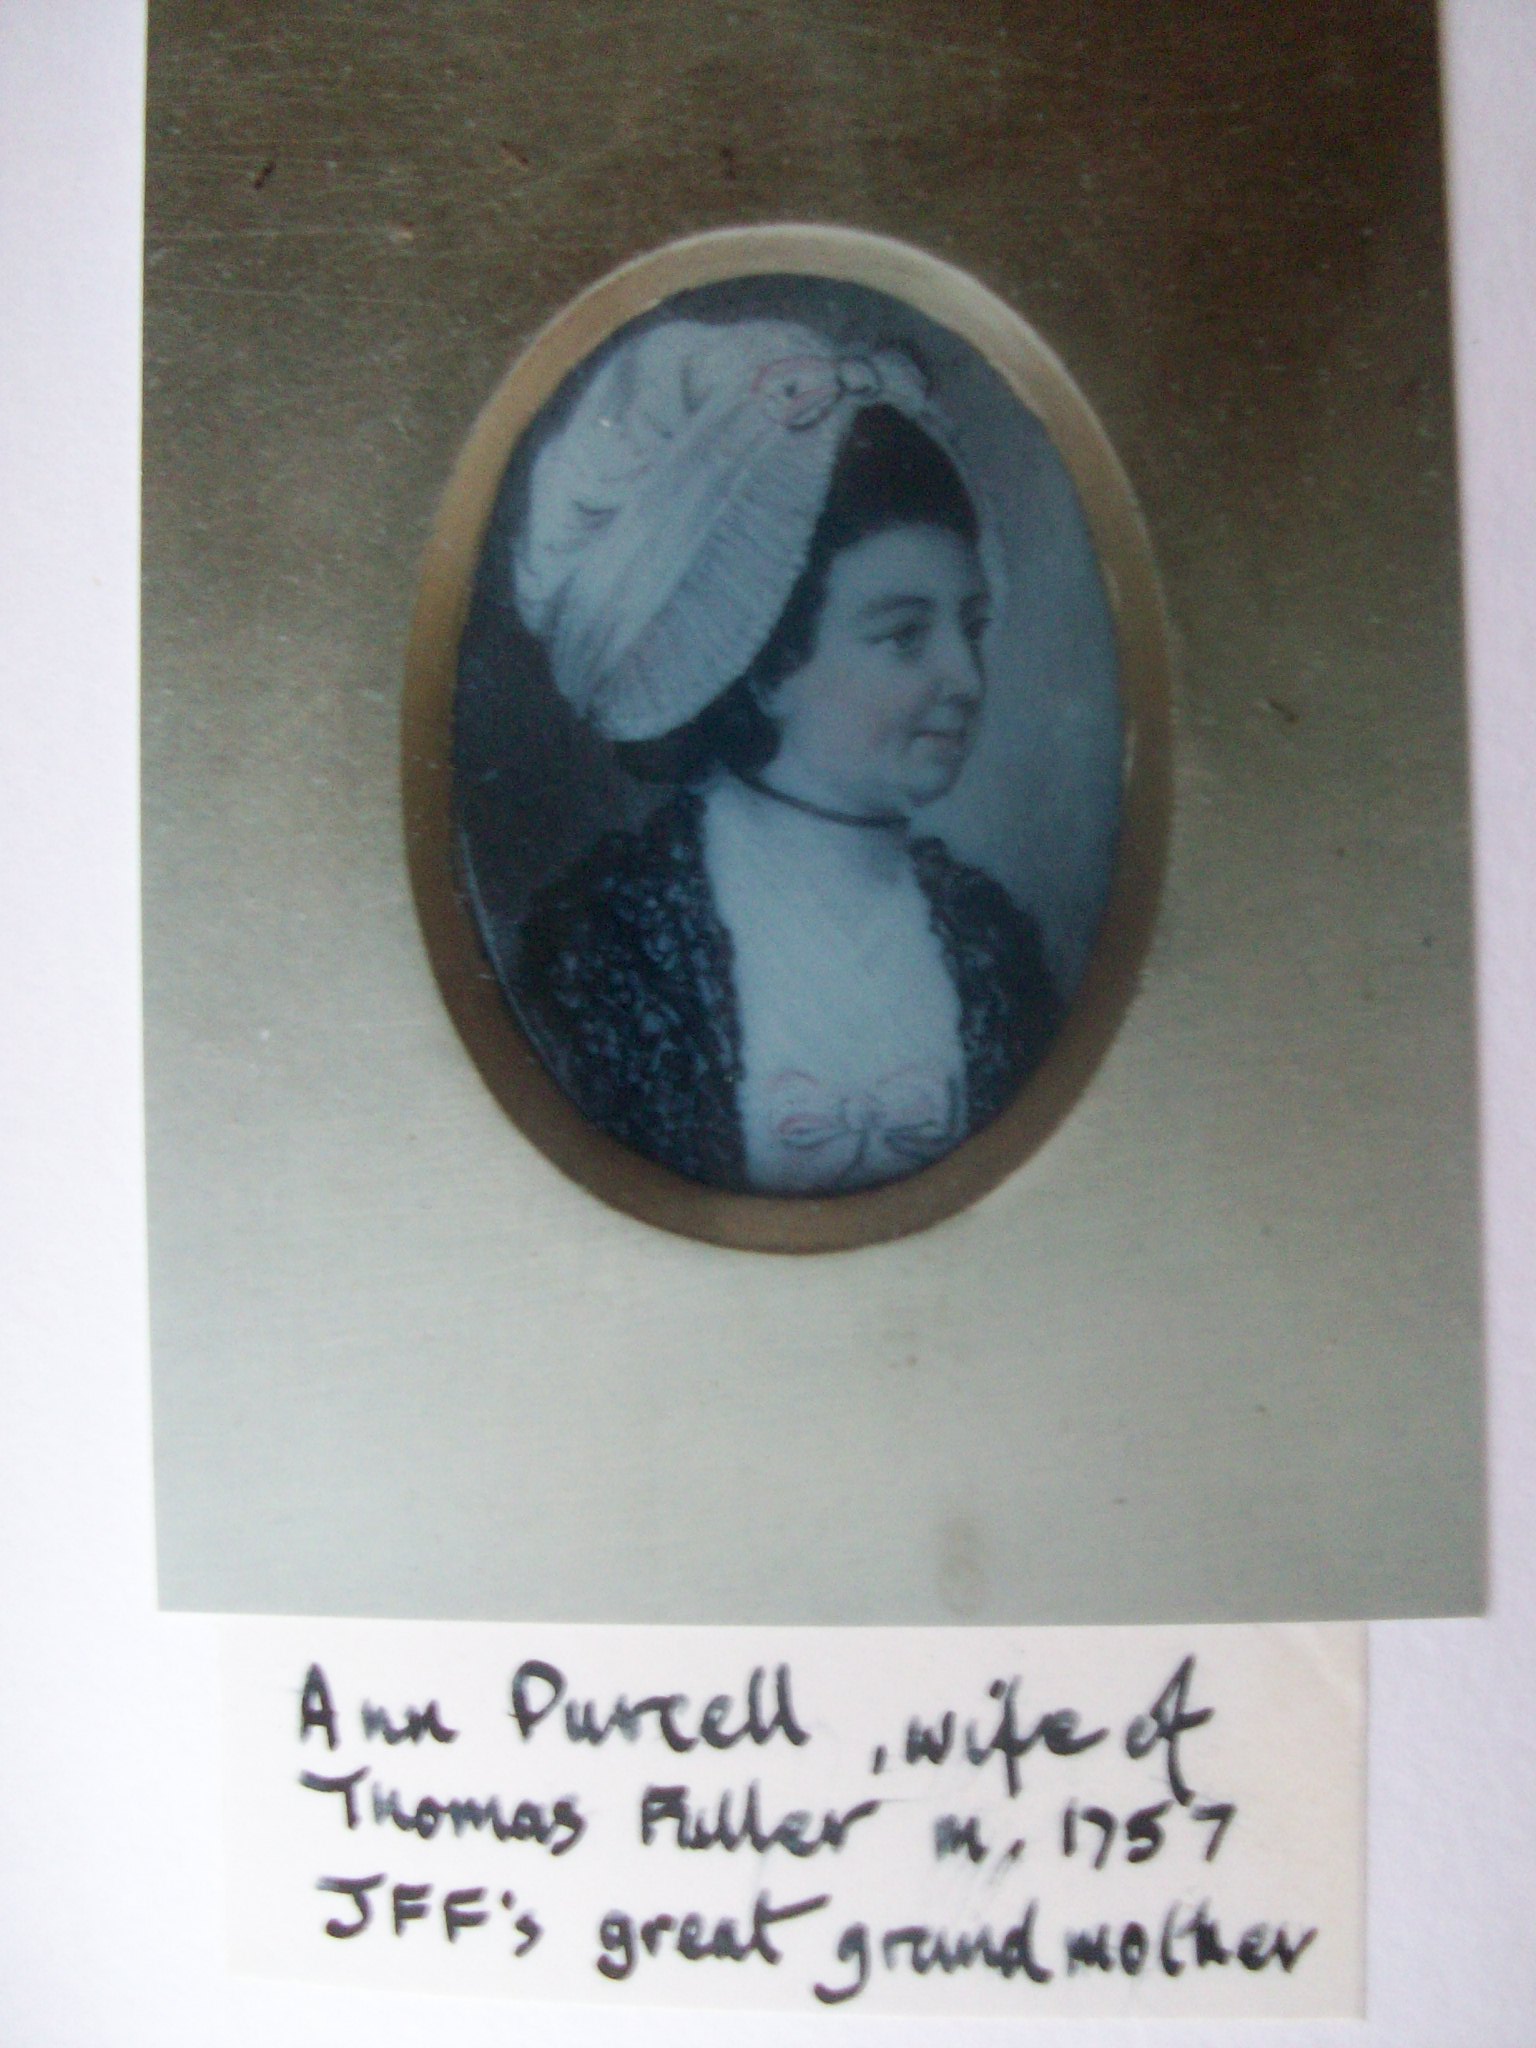 Ann Purcell, wife of
Thomas Fuller m. 1757
JFF's great grandmother